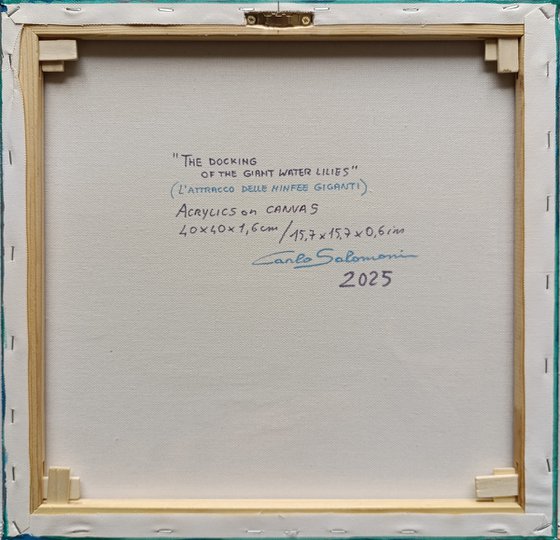 "THE DOCKING
OF THE GIANT WATER LILIES"
(L'ATTRACCO DELLE NINFEE GIGANTI)
ACRYLICS on CANVAS
40x40x1,6cm/15,7x15,7x0,6im
Carlo Salomoni
2025